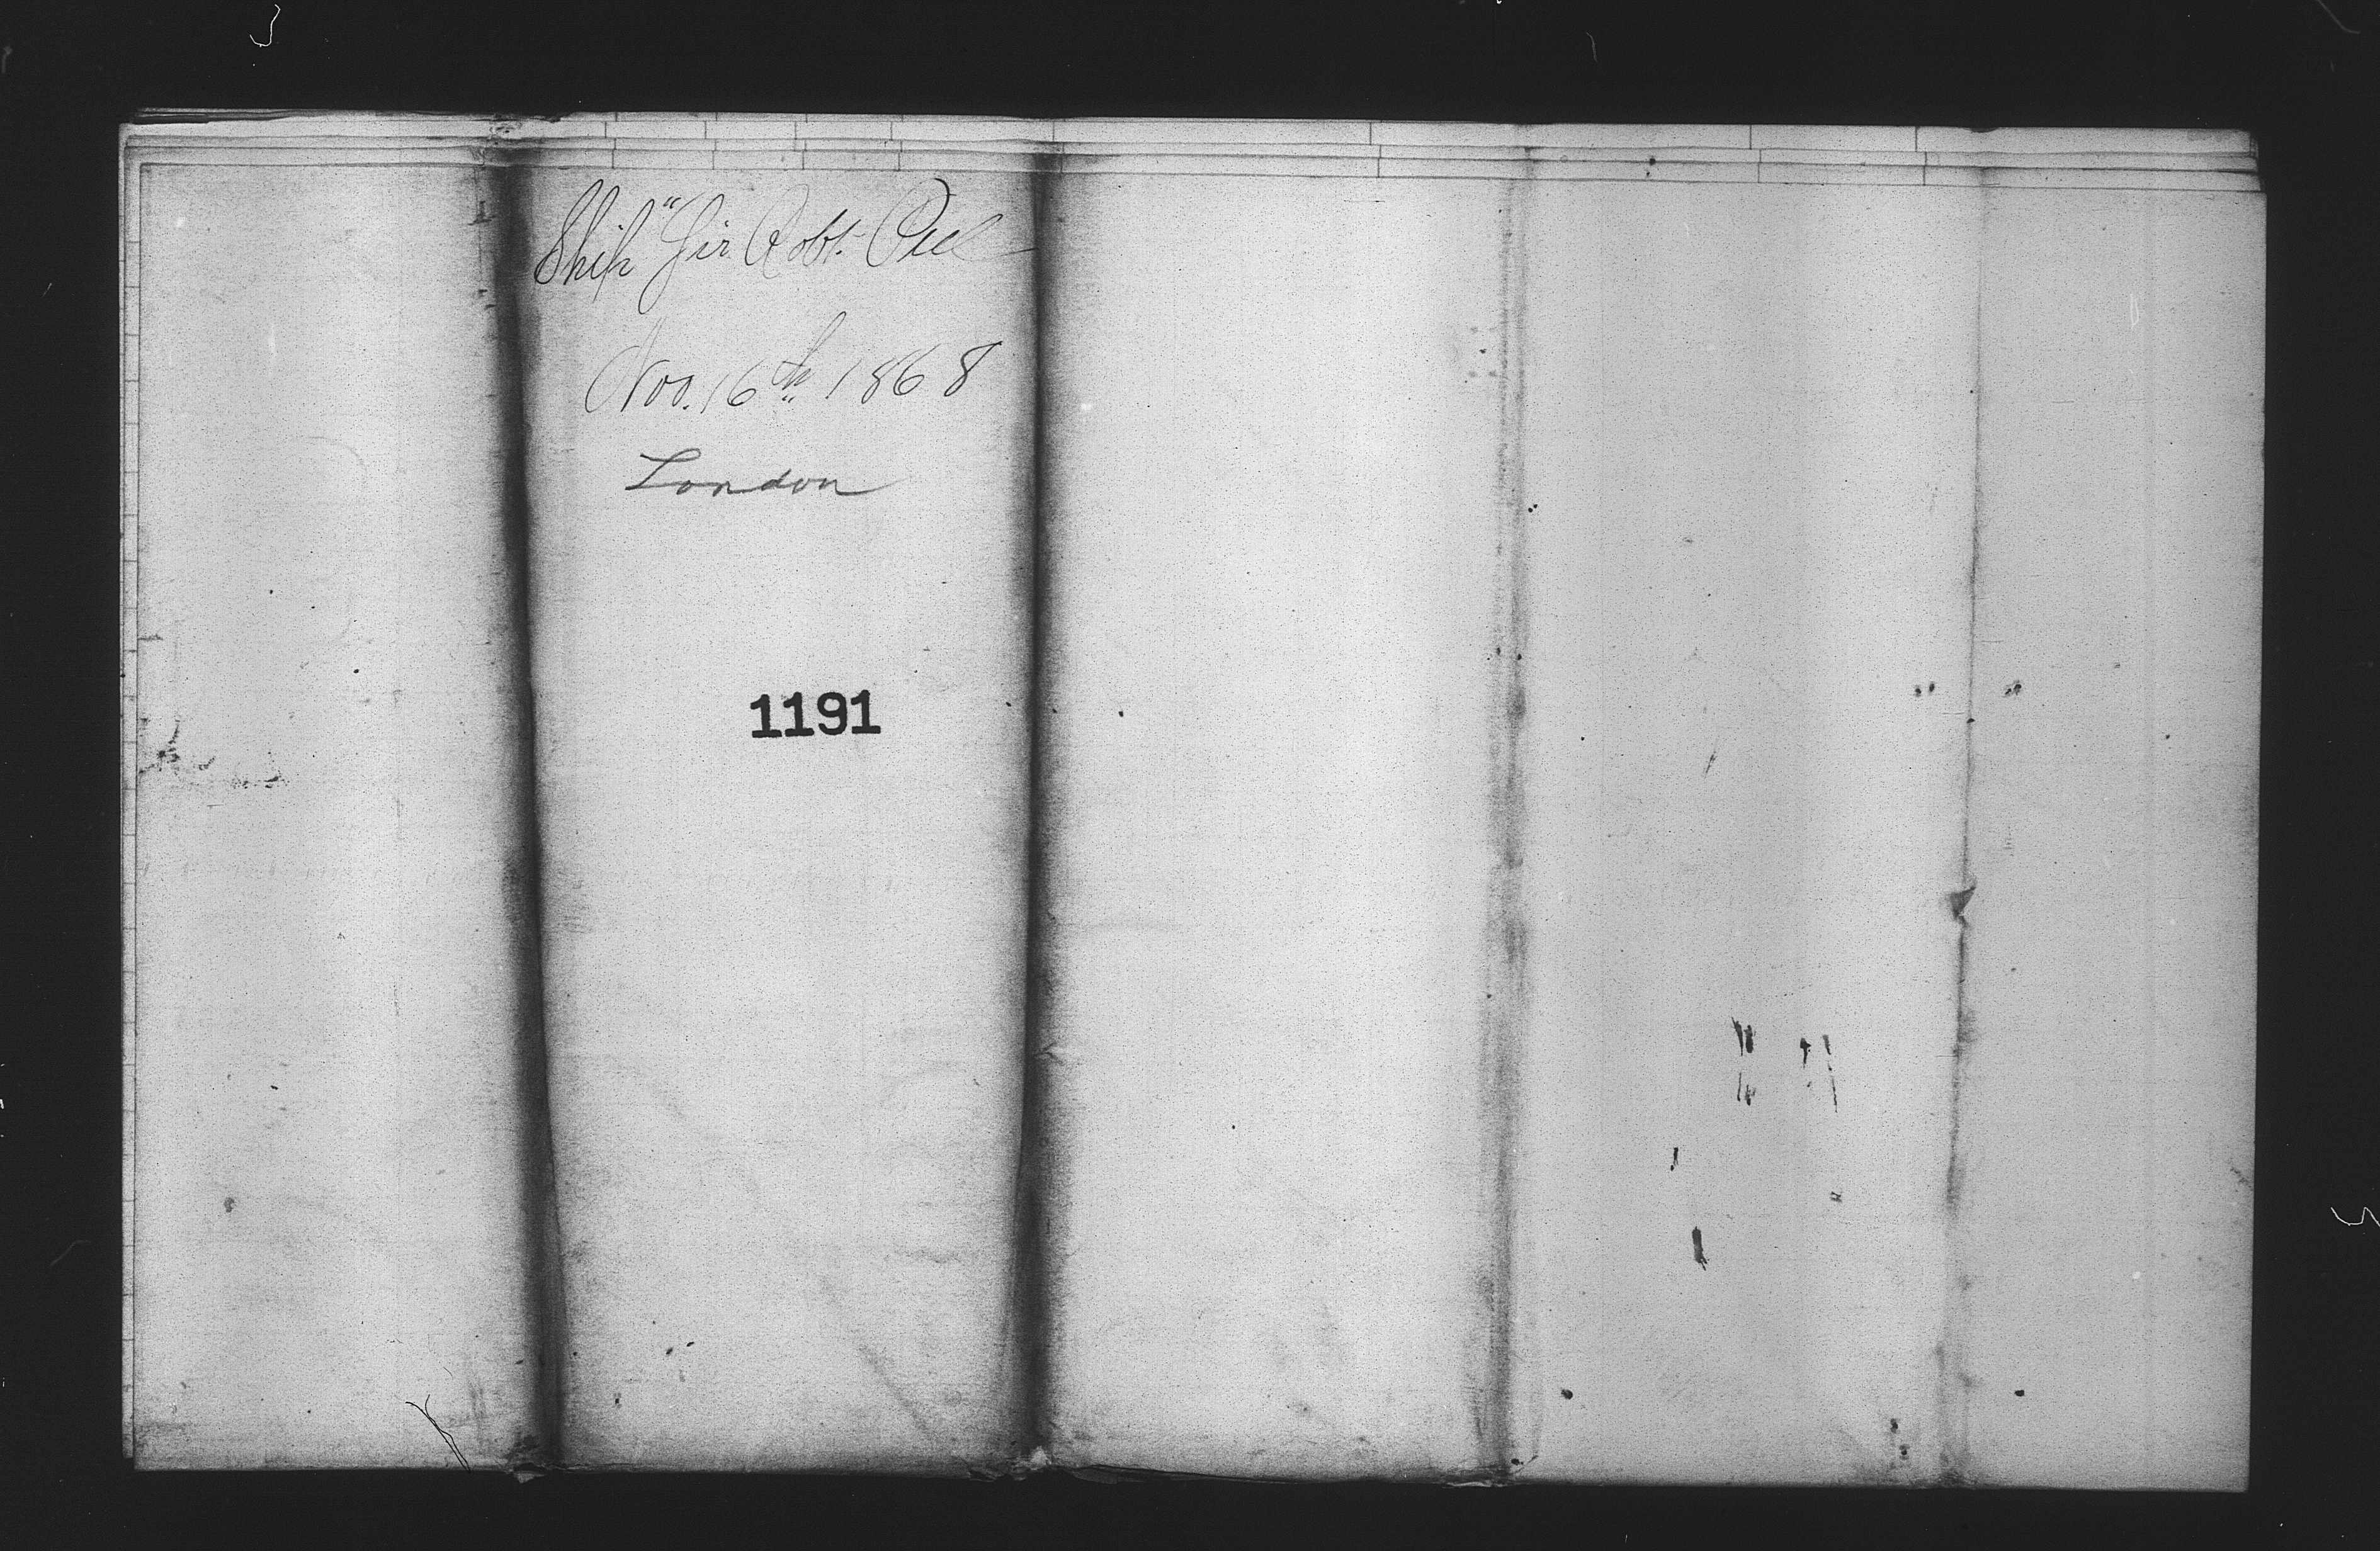 Ship "Sir Robt. Peel
Nov. 16th 1868
London
1191